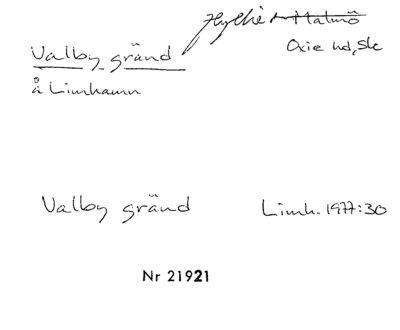 Hyllie
Valby gränd
Oxie hd, Sk
å Limhamn
Valby gränd Limh. 1977:30
Nr 21921